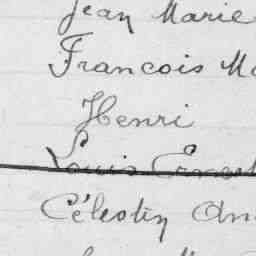 Jean Marie
Francois Ma
Henri
Louis Ernest
Célestin An